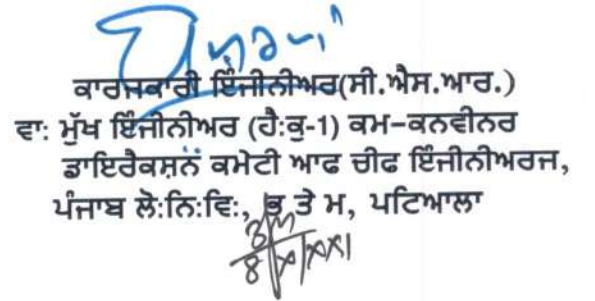 ਕਾਰਜਕਾਰੀ ਇੰਜੀਨੀਅਰ(ਸੀ.ਐਸ.ਆਰ.)
ਵਾ: ਮੁੱਖ ਇੰਜੀਨੀਅਰ (ਹੈ:ਕੁ-1) ਕਮ-ਕਨਵੀਨਰ
ਡਾਇਰੈਕਸ਼ਨਂ ਕਮੇਟੀ ਆਫ ਚੀਫ ਇੰਜੀਨੀਅਰਜ,
ਪੰਜਾਬ ਲੋ:ਨਿ:ਵਿ:, ਭ ਤੇ ਮ, ਪਟਿਆਲਾ